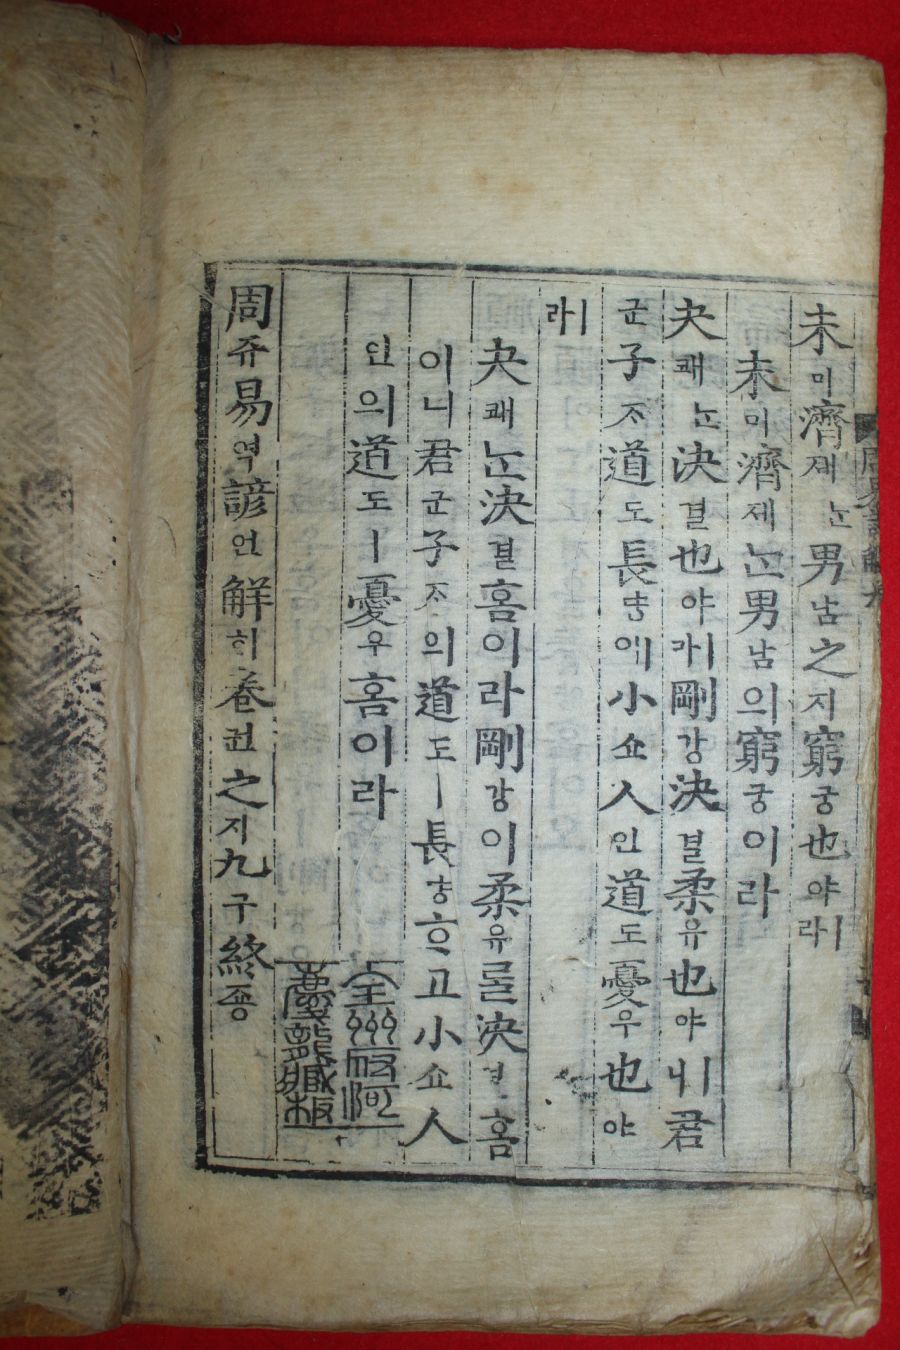 未미濟졔ᄂᆞᆫ男남之지窮궁也야ㅣ라
未미濟졔ᄂᆞᆫ男남의窮궁이라
夬쾌ᄂᆞᆫ決결也야ㅣ라剛강決결柔유也야ㅣ니君
군子ᄌᆞ道도長댱애小쇼人인道도憂우也야
ㅣ라
夬쾌ᄂᆞᆫ決결홈이라剛강이柔유를決결홈
이니君군子ᄌᆞ의道도ㅣ長댱ᄒᆞ고小쇼人
인의道도ㅣ憂우홈이라
全州府河
慶龍藏板
周쥬易역諺언解ᄒᆡ卷권之지九구終죵
周易諺解 九